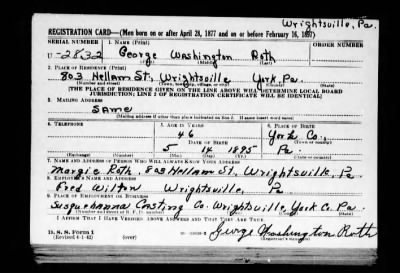 Wrightsville, Pa.
REGISTRATION CARD—(Men born on or after April 28, 1877 and on or before February 16, 1897)
SERIAL NUMBER 1. NAME (Print) ORDER NUMBER
U-2832 George Washington Roth
(First) (Middle) (Last)
2. PLACE OF RESIDENCE (Print)
803 Hellam St., Wrightsville York, Pa.
(Number and street) (Town, township, village, or city) (County) (State)
[THE PLACE OF RESIDENCE GIVEN ON THE LINE ABOVE WILL DETERMINE LOCAL BOARD
JURISDICTION; LINE 2 OF REGISTRATION CERTIFICATE WILL BE IDENTICAL]
3. MAILING ADDRESS
SAME
[Mailing address if other than place indicated on line 2. If same insert word same]
4. TELEPHONE 5. AGE IN YEARS 6. PLACE OF BIRTH
46 York Co.,
DATE OF BIRTH (Town or county)
5 14 1895 Pa.
(Exchange) (Number) (Mo.) (Day) (Yr.) (State or country)
7. NAME AND ADDRESS OF PERSON WHO WILL ALWAYS KNOW YOUR ADDRESS
Margie Roth, 803 Hellam St, Wrightsville, Pa.
8. EMPLOYER'S NAME AND ADDRESS
Fred Wilton Wrightsville, Pa.
9. PLACE OF EMPLOYMENT OR BUSINESS
Susquehanna Casting Co. Wrightsville, York Co. Pa
(Number and street or R. F. D. number) (Town) (County) (State)
I AFFIRM THAT I HAVE VERIFIED ABOVE ANSWERS AND THAT THEY ARE TRUE.
D. S. S. Form 1
(Revised 4-1-42) (over) George Washington Roth